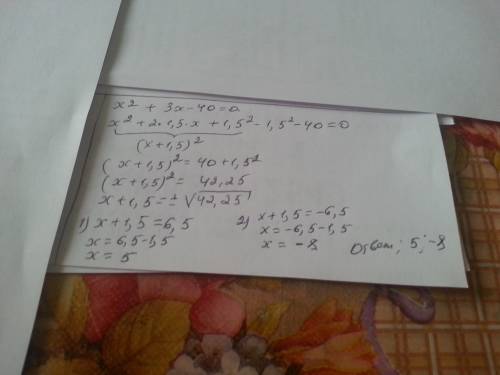 x² + 3x-40=0
x² + 2·1,5·x + 1,5² - 1,5² - 40 = 0
(x+1,5)²
(x+1,5)² = 40+1,5²
(x+1,5)² = 42,25
x+1,5 = ± √42,25
1) x+1,5 = 6,5
x = 6,5-1,5
x = 5
2) x+1,5 = -6,5
x = -6,5-1,5
x = -8
Ответ: 5; -8